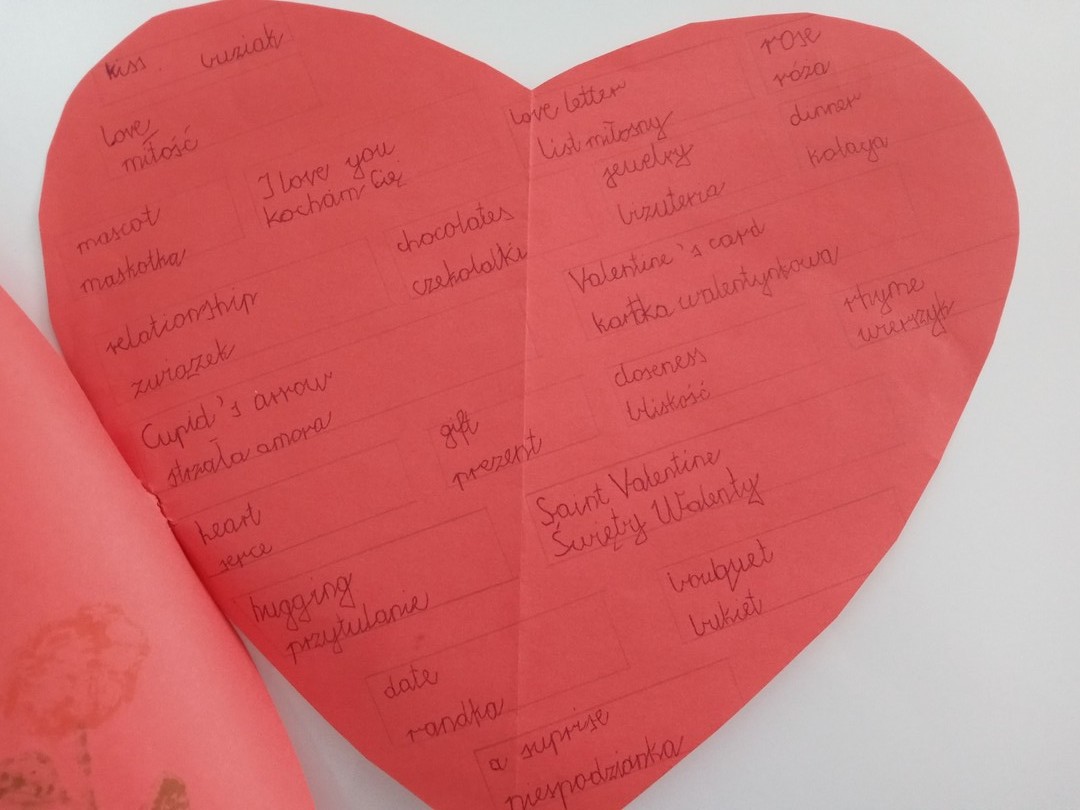 kiss. buziak
love
miłość
I love you
kocham Cię
mascot
maskotka
chocolates
czekoladki
relationship
związek
Cupid's arrow
strzała amora
gift
prezent
heart
serce
hugging
przytulanie
date
randka
a suprise
niespodzianka
love letter
list miłosny
rose
róża
jewelry
biżuteria
dinner
kolacja
Valentine's card
kartka walentynkowa
rhyme
wierszyk
closeness
bliskość
Saint Valentine
Święty Walenty
bouquet
bukiet